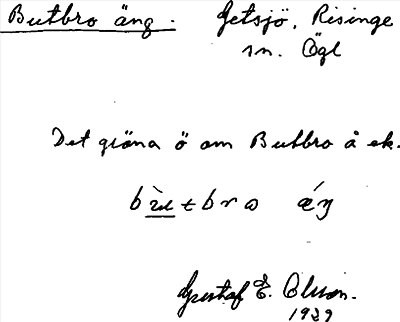 Butbro äng. Getsjö, Risinge
sn. Ögl
Det gröna ö om Butbro å ek.
bùtbro ǽŋ
Gustaf E. Olson.
1929